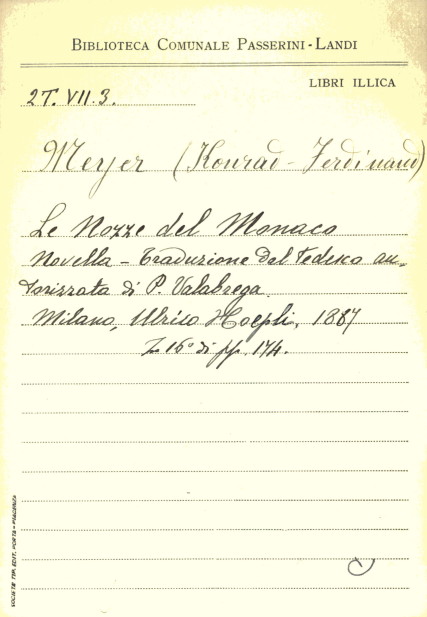 BIBLIOTECA COMUNALE PASSERINI-LANDI
LIBRI ILLICA
2T. VII. 3.
Meyer (Konrad-Ferdinand)
Le Nozze del Monaco
Novella - Traduzione dal Tedesco au-
torizzata di P. Valabrega
Milano, Ulrico Hoepli, 1887
16° di pp. 174.
SOCIETÀ TIP. EDIT. PORTA - PIACENZA